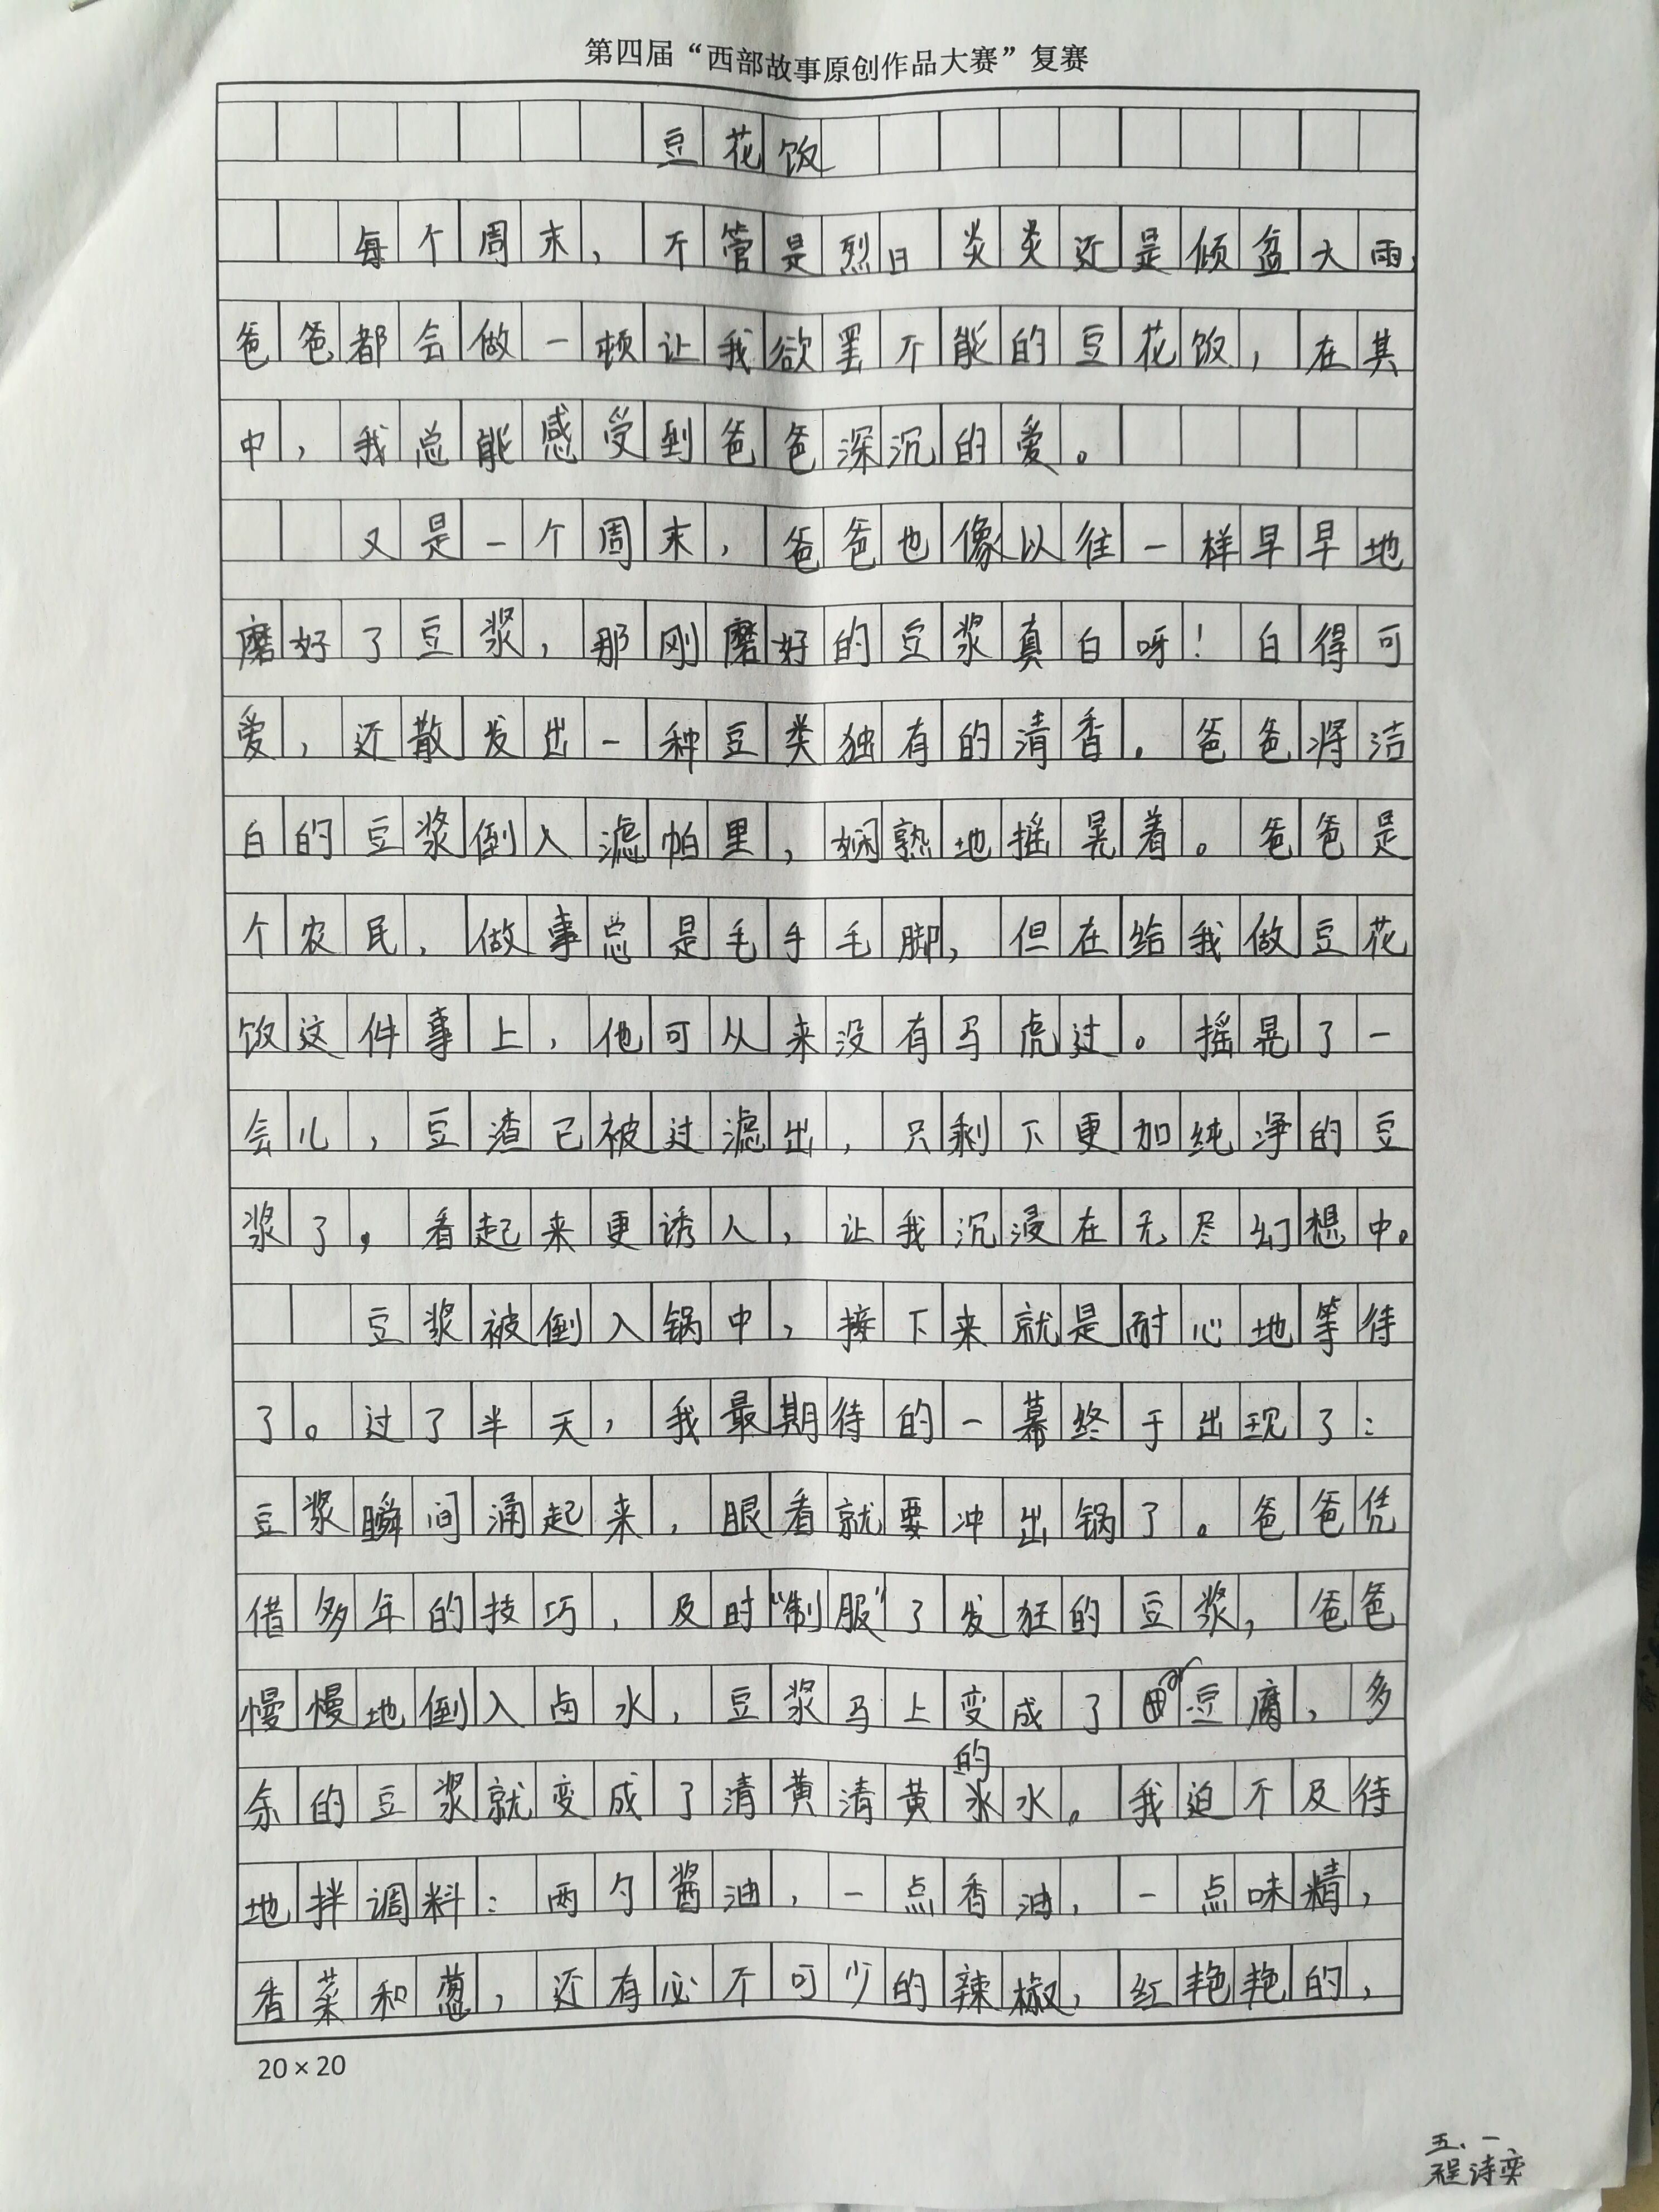 第四届“西部故事原创作品大赛”复赛
豆花饭
每个周末，不管是烈日炎炎还是倾盆大雨，
爸爸都会做一顿让我欲罢不能的豆花饭，在其
中，我总能感受到爸爸深沉的爱。
又是一个周末，爸爸也像以往一样早早地
磨好了豆浆，那刚磨好的豆浆真白呀！白得可
爱，还散发出一种豆类独有的清香。爸爸将洁
白的豆浆倒入滤帕里，娴熟地摇晃着。爸爸是
个农民，做事总是毛手毛脚，但在给我做豆花
饭这件事上，他可从来没有马虎过。摇晃了一
会儿，豆渣已被过滤出，只剩下更加纯净的豆
浆了，看起来更诱人，让我沉浸在无尽幻想中。
豆浆被倒入锅中，接下来就是耐心地等待
了。过了半天，我最期待的一幕终于出现了：
豆浆瞬间涌起来，眼看就要冲出锅了。爸爸凭
借多年的技巧，及时“制服”了发狂的豆浆，爸爸
慢慢地倒入卤水，豆浆马上变成了豆腐，多
余的豆浆就变成了清黄清黄的水。我迫不及待
地拌调料：两勺酱油，一点香油，一点味精，
香菜和葱，还有必不可少的辣椒，红艳艳的，
20×20
五、一
程诗奕